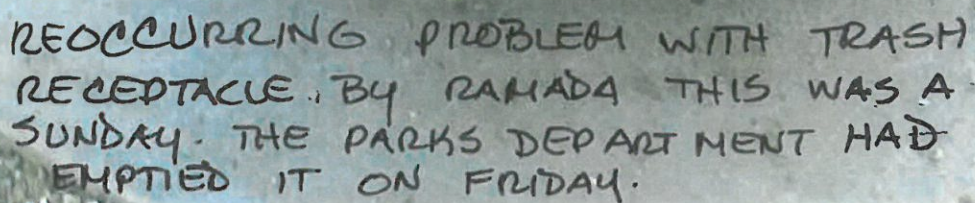 REOCCURRING PROBLEM WITH TRASH
RECEPTACLE. BY RAMADA THIS WAS A
SUNDAY. THE PARKS DEPARTMENT HAD
EMPTIED IT ON FRIDAY.